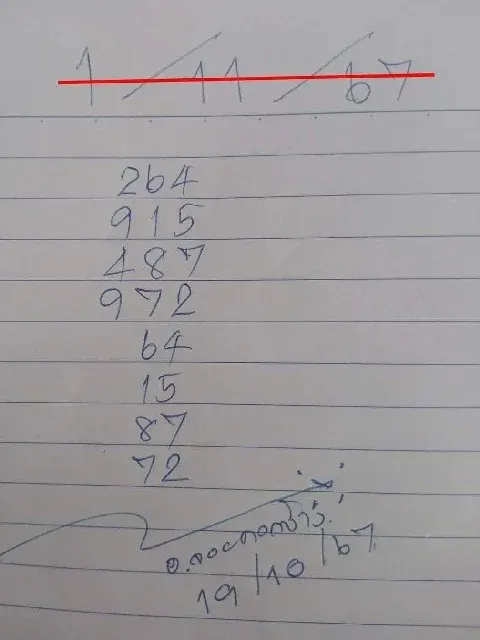 1/11/67
264
915
487
972
64
15
87
72
19/10/67